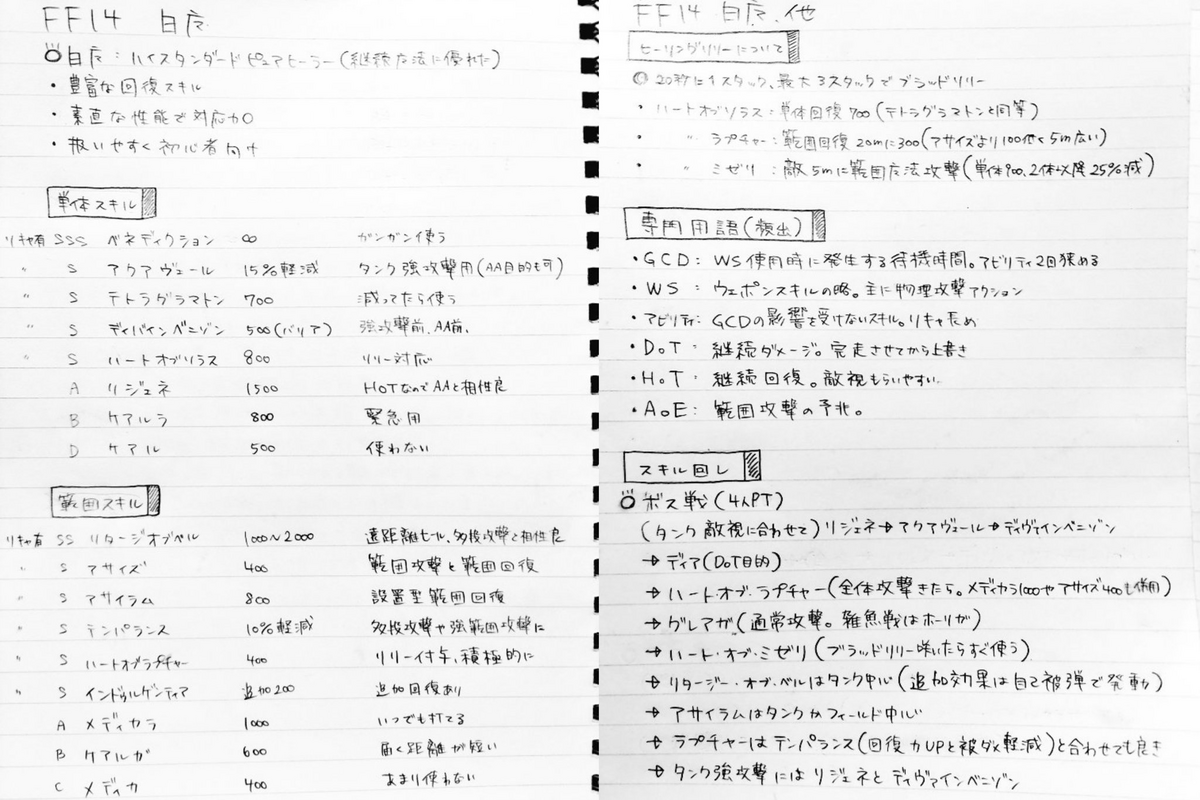 FF14 白广
◎白广：ハイスタンダードピュアヒーラー(継続广法に優れた)
・豊富な回復スキル
・素直な性能で対応力○
・扱いやすく初心者向け
単体スキル
リキャ有 SSS ベネディクション ∞ ガンガン使う
〃 S アクアヴェール 15%軽減 タンク強攻撃用(AA目的も可)
〃 S テトラグラマトン 700 減ってたら使う
〃 S ディバインベニゾン 500(バリア) 強攻撃前、AA前、
〃 S ハートオブソラス 800 リリー対応
A リジェネ 1500 HOTなのでAAと相性良
B ケアルラ 800 緊急用
D ケアル 500 使わない
範囲スキル
リキャ有 SS リタージオブベル 1000~2000 遠距離ヒール、多段攻撃と相性良
〃 S アサイズ 400 範囲攻撃と範囲回復
〃 S アサイラム 800 設置型範囲回復
〃 S テンパランス 10%軽減 多段攻撃や強範囲攻撃に
〃 S ハートオブラプチャー 400 リリー付与、積極的に
〃 S インドゥルゲンティア 追加200 追加回復あり
A メディカラ 1000 いつでも打てる
B ケアルガ 600 届く距離が短い
C メディカ 400 あまり使わない
FF14 白广、他
ヒーリングリリーについて
◎20秒に1スタック、最大3スタックでブラッドリリー
・ハートオブソラス：単体回復700(テトラグラマトンと同等)
・〃 ラプチャー：範囲回復20mに300(アサイズより100低く5m広い)
・〃 ミゼリ：敵5mに範囲广法攻撃(単体900、2体以降25%減)
専門用語(頻出)
・GCD：WS使用時に発生する待機時間。アビリティ2回狭める
・WS：ウェポンスキルの略。主に物理攻撃アクション
・アビリティ：GCDの影響を受けないスキル。リキャ長め
・DoT：継続ダメージ。完走させてから上書き
・HoT：継続回復。敵視もらいやすい。
・AoE：範囲攻撃の予兆。
スキル回し
◎ボス戦(4人PT)
(タンク敵視に合わせて)リジェネ→アクアヴェール→ディヴァインベニゾン
→ディア(DoT目的)
→ハート・オブ・ラプチャー(全体攻撃きたら。メディカラ1000やアサイズ400も併用)
→グレアガ(通常攻撃。雑魚戦はホーリガ)
→ハート・オブ・ミゼリ(ブラッドリリー咲いたらすぐ使う)
→リタージー・オブ・ベルはタンク中心(追加効果は自己被弾で発動)
→アサイラムはタンクかフィールド中心
→ラプチャーはテンパランス(回復力UPと被ダメ軽減)と合わせても良き
→タンク強攻撃にはリジェネとディヴァインベニゾン